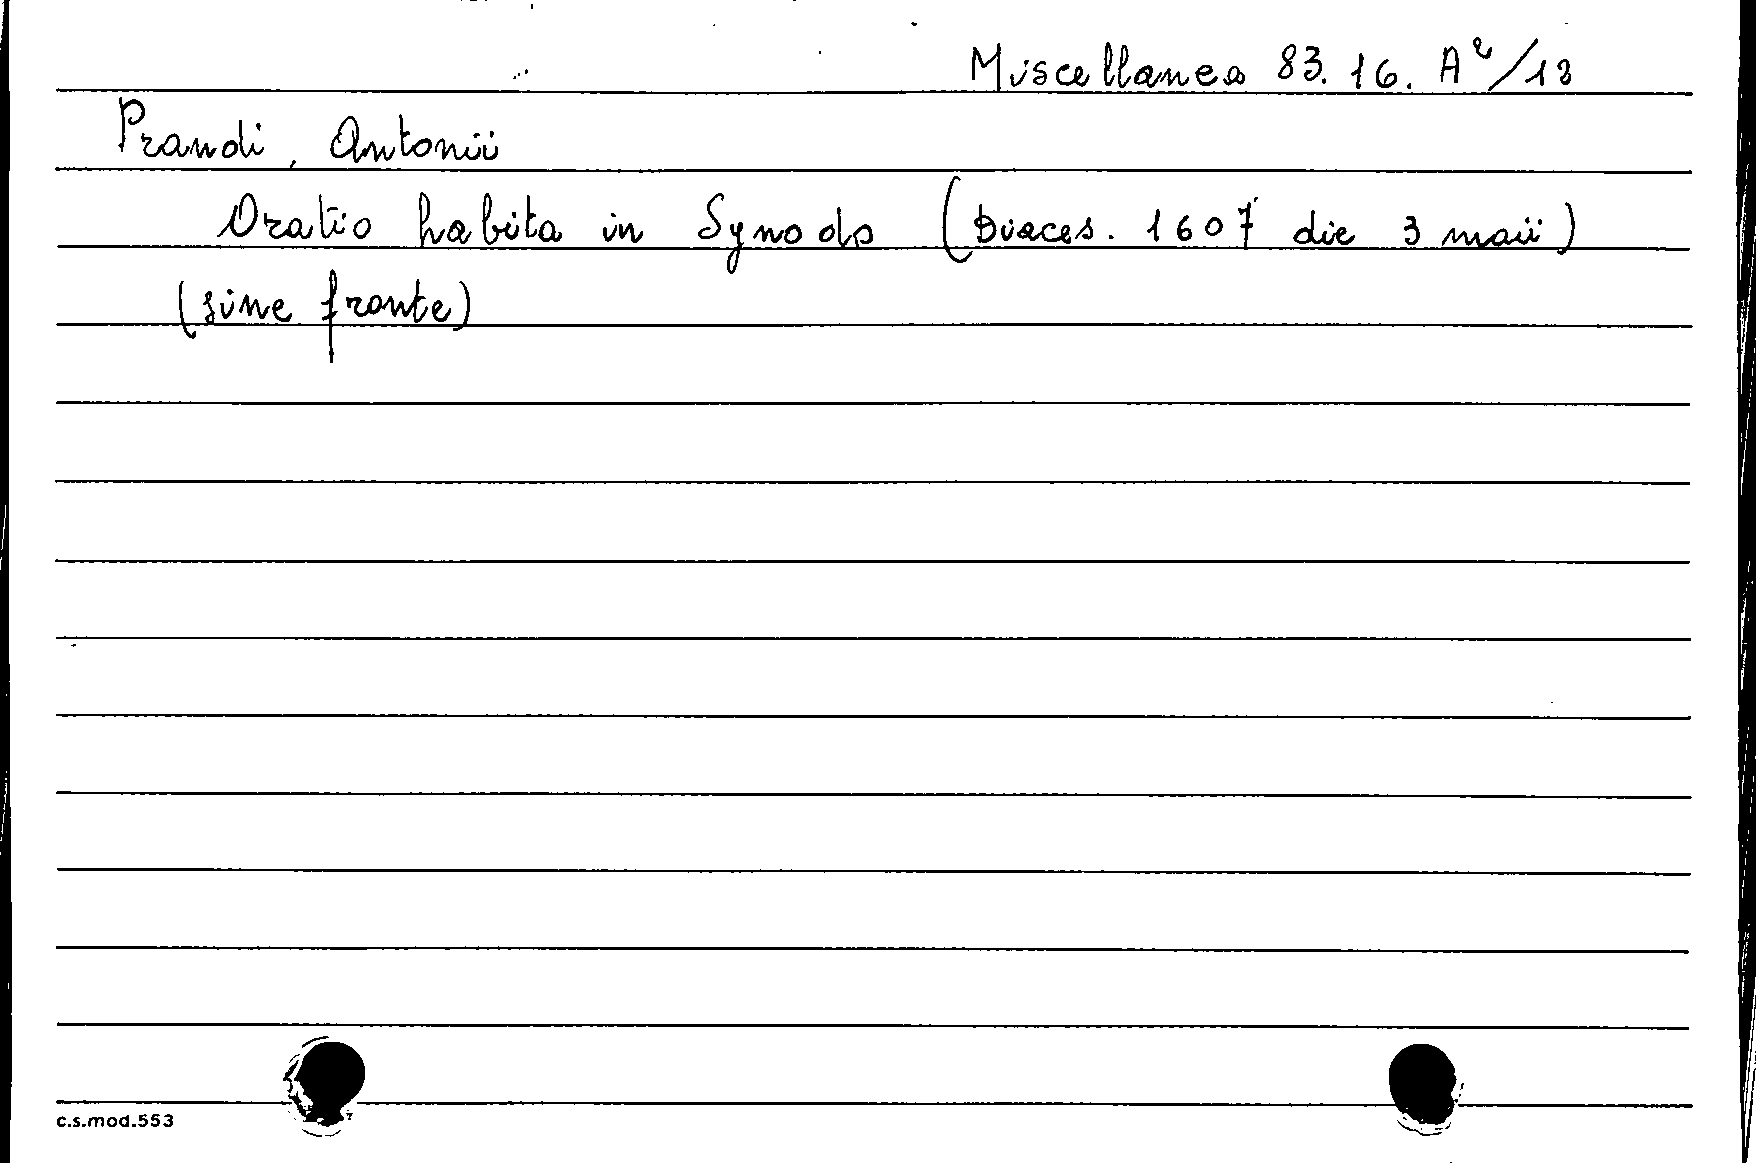 Miscellanea 83.16. A²/13
Prandi, Antonii
Oratio habita in Synodo (Diaces. 1607 die 3 maii)
(sine fronte)
c.s.mod.553